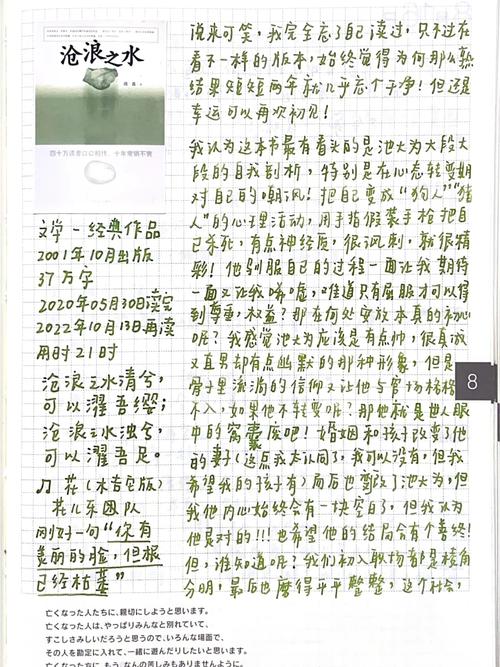 沧浪之水
四十万读者口口相传，十年常销不衰
文学－经典作品
2001年10月出版
37万字
2020年05月30日读完
2022年10月13日再读
用时21时
沧浪之水清兮，
可以濯吾缨；
沧浪之水浊兮，
可以濯吾足。
♫ 花（木吉他版）
花儿乐团队
刚好一句“你有
美丽的脸，但根
已经枯萎”
说来可笑，我完全忘了自己读过，只不过在
看了一样的版本，始终觉得为何那么熟
结果短短两年就几乎忘个干净！但还是
幸运可以再次初见！
我认为这本书最有看头的是池大为大段大
段的自我剖析，特别是在心态转变期
对自己的嘲讽！把自己变成“狗人”“猪
人”的心理活动，用手指假装手枪把自
己杀死，有点神经质，很讽刺，就很精
彩！他别服自己的过程一面让我期待
一面又让我唏嘘，难道只有屈服才可以得
到尊重，权益？那在何处安放本真的初心
呢？我感觉池大为应该是有点帅，很真诚
又直男却有点幽默的那种形象，但是
骨子里流淌的信仰又让他与官场格格
不入，如果他不转变呢？那他就是世人眼
中的窝囊废吧！婚姻和孩子改变了他
的妻子（这点我太认同了，我可以没有，但我
希望我的孩子有）而后也变改了池大为，但
我他内心始终会有一块空白，但我认为
他是对的!!!也希望他的结局会有个善终！
但，谁知道呢？我们初入职场都是棱角
分明，最后也磨得平平整整，这个社会，
8
亡くなった人たちに、親切にしようと思います。
亡くなった人は、やっぱりみんなと別れていて、
すこしさみしいだろうと思うので、いろんな場面で、
その人を勘定に入れて、一緒に遊んだりしたいと思います。
亡くなった方に、もう、なんの苦しみもありませんように。